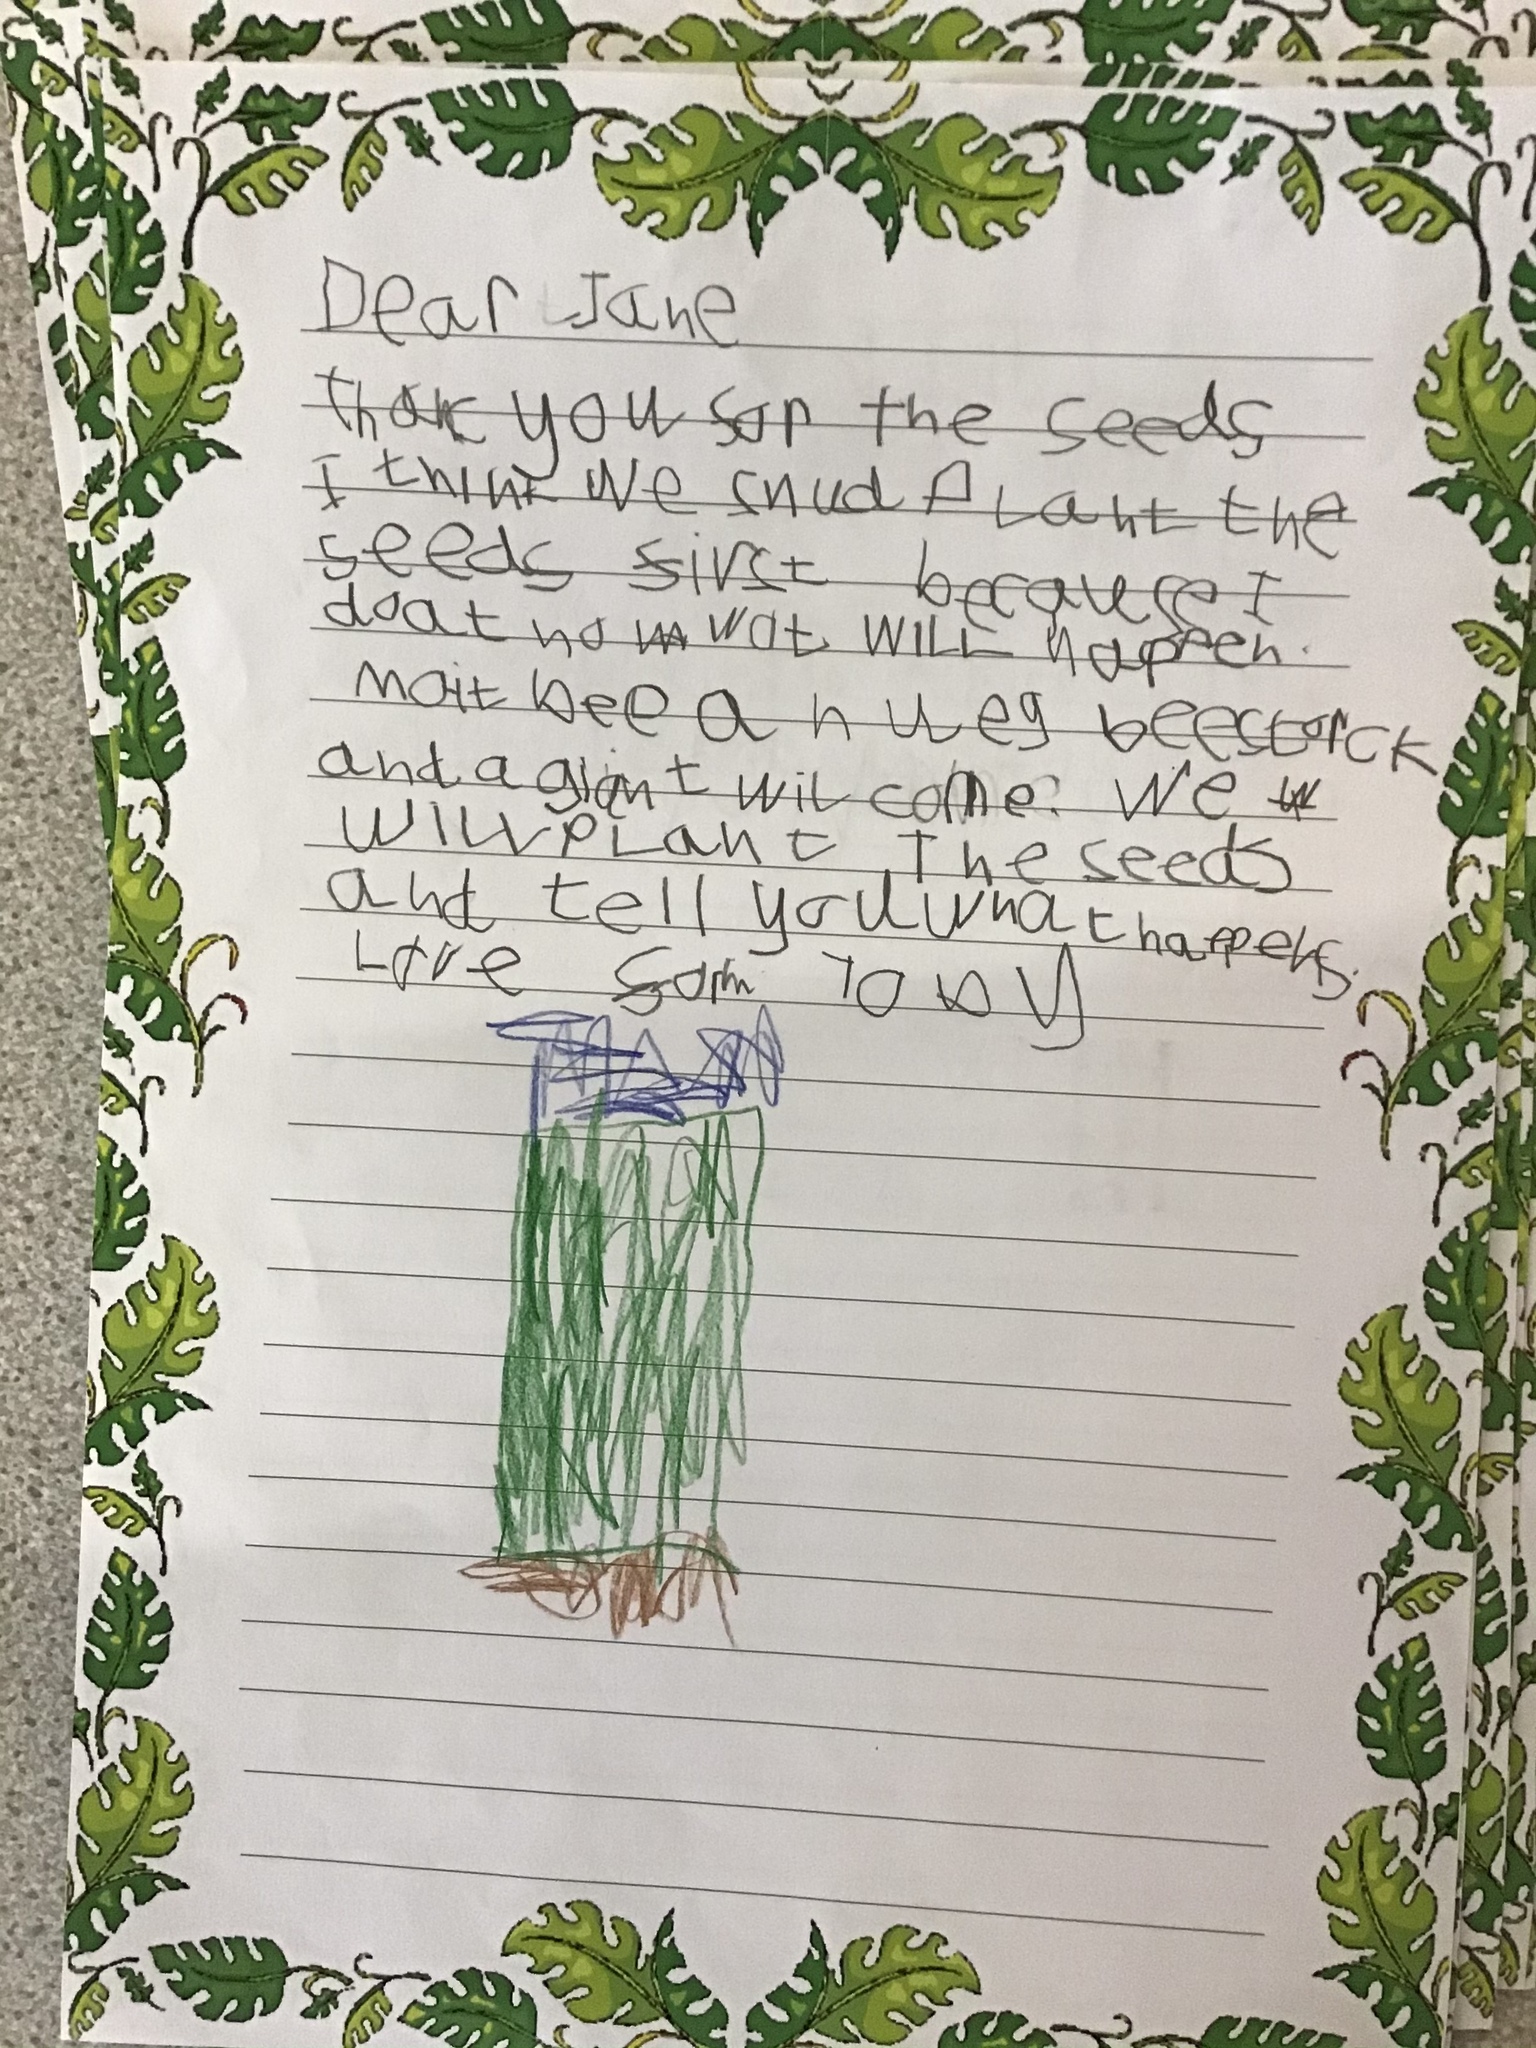 Dear Jane
thank you for the seeds
I think We shud Plant the
seeds first because I
doat no wat WILL happen.
mait bee a hueg beestorck
and a giant wil come. We
WILL PLant The seeds
and tell you what happens.
Love from Toby